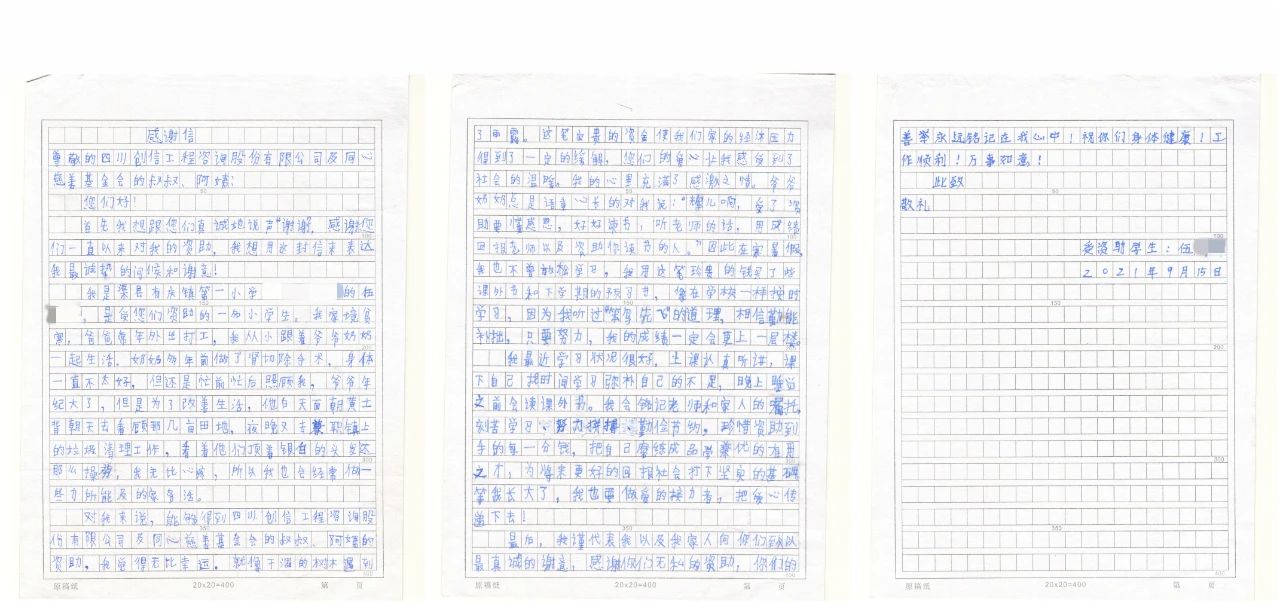 感谢信
尊敬的四川创信工程咨询股份有限公司及同心
慈善基金会的叔叔、阿姨:
您们好!
首先我想跟您们真诚地说声"谢谢",感谢您
们一直以来对我的资助,我想用这封信来表达
我最诚挚的问候和谢意!
我是渠县有庆镇第一小学 的伍
,是受您们资助的一名小学生。我家境贫
寒,爸爸常年外出打工,我从小跟着爷爷奶奶
一起生活。奶奶多年前做了肾切除手术,身体
一直不太好,但还是忙前忙后照顾我,爷爷年
纪大了,但是为了改善生活,他白天面朝黄土
背朝天去看顾那几亩田地,夜晚又去兼职镇上
的垃圾清理工作,看着他们顶着银白的头发还
那么操劳,我无比心疼,所以我也会经常做一
些力所能及的家务活。
对我来说,能够得到四川创信工程咨询股
份有限公司及同心慈善基金会的叔叔、阿姨的
资助,我觉得无比幸运。就像干涸的树木遇到
原稿纸 20x20=400 第 页
了雨露。这笔宝贵的资金使我们家的经济压力
得到了一定的缓解,您们的爱心让我感受到了
社会的温暖,我的心里充满了感激之情。爷爷
奶奶总是语重心长的对我说:" 儿啊,受了资
助要懂感恩,好好读书,听老师的话,用成绩
回报老师以及资助你读书的人。"因此在寒暑假,
我也不曾放松学习,我用这笔珍贵的钱买了些
课外书和下学期的预习书,像在学校一样按时
学习,因为我听过"笨鸟先飞"的道理,相信勤能
补拙,只要努力,我的成绩一定会更上一层楼。
我最近学习状况很好,上课认真听讲,课
下自己找时间学习弥补自己的不足,晚上睡觉
之前会读课外书。我会铭记老师和家人的嘱托,
刻苦学习、努力拼搏、勤俭节约,珍惜资助到
手的每一分钱,把自己磨练成品学兼优的有用
之才,为将来更好的回报社会打下坚实的基础
等我长大了,我也要做爱的接力者,把爱心传
递下去!
最后,我谨代表我以及我家人向你们致以
最真诚的谢意,感谢你们无私的资助,你们的
原稿纸 20x20=400 第 页
善举永远铭记在我心中!祝你们身体健康!工
作顺利!万事如意!
此致
敬礼
受资助学生:伍
2021年9月15日
原稿纸 20x20=400 第 页